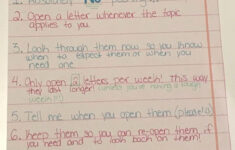 1. Absolutely No
2. Open a letter whenever the topic
applies to you
3. Look through them now so you know
when to expect them or when you
need one
4. Only open 2 letters per week! this way
they last longer! (unless you're having a rough
week!!!)
5. Tell me when you open them (please!)
6. Keep them so you can re-open them if
you need and to look back on them!